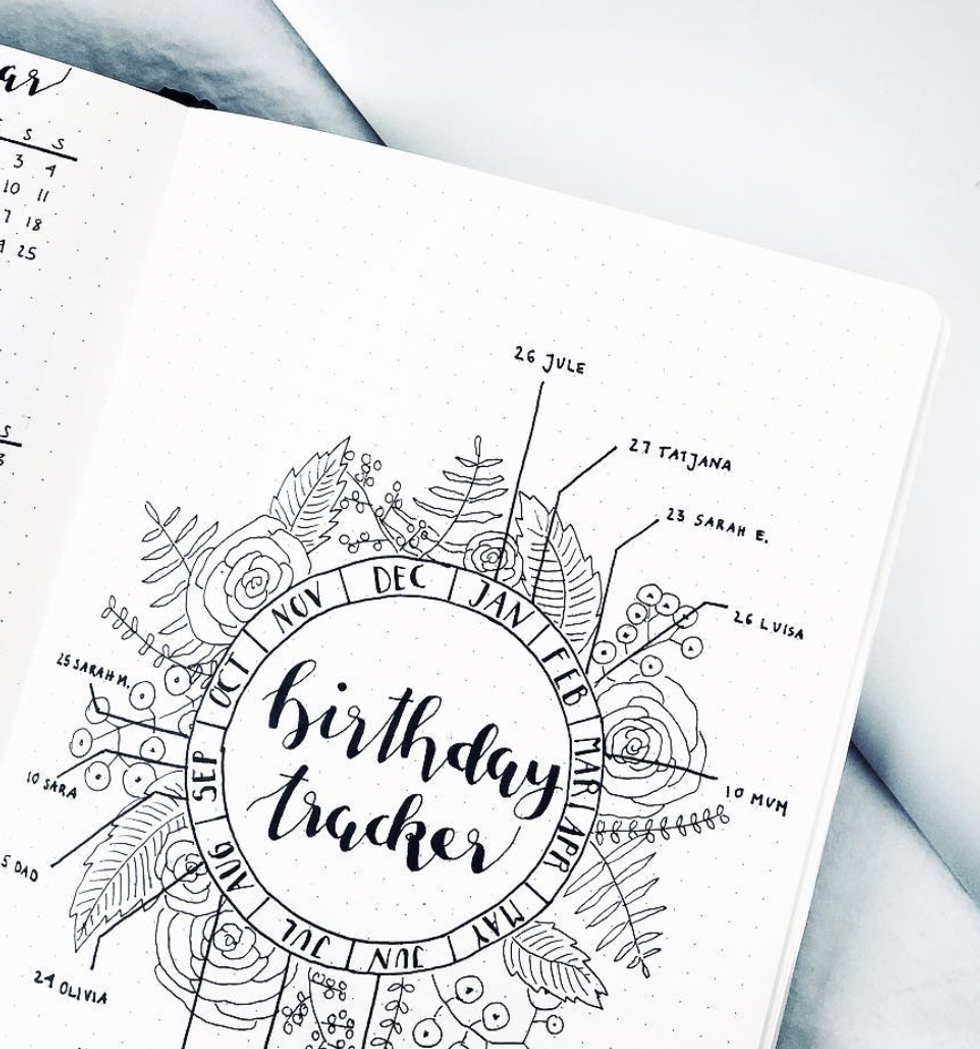 ar
S S
3 4
10 11
7 18
25
S
3
26 JULE
27 TATJANA
23 SARAH E.
26 LUISA
10 MUM
DEC
JAN
FEB
MAR
APR
MAY
JUN
JUL
AUG
SEP
OCT
NOV
birthday
tracker
25 SARAH M.
10 SARA
5 DAD
24 OLIVIA